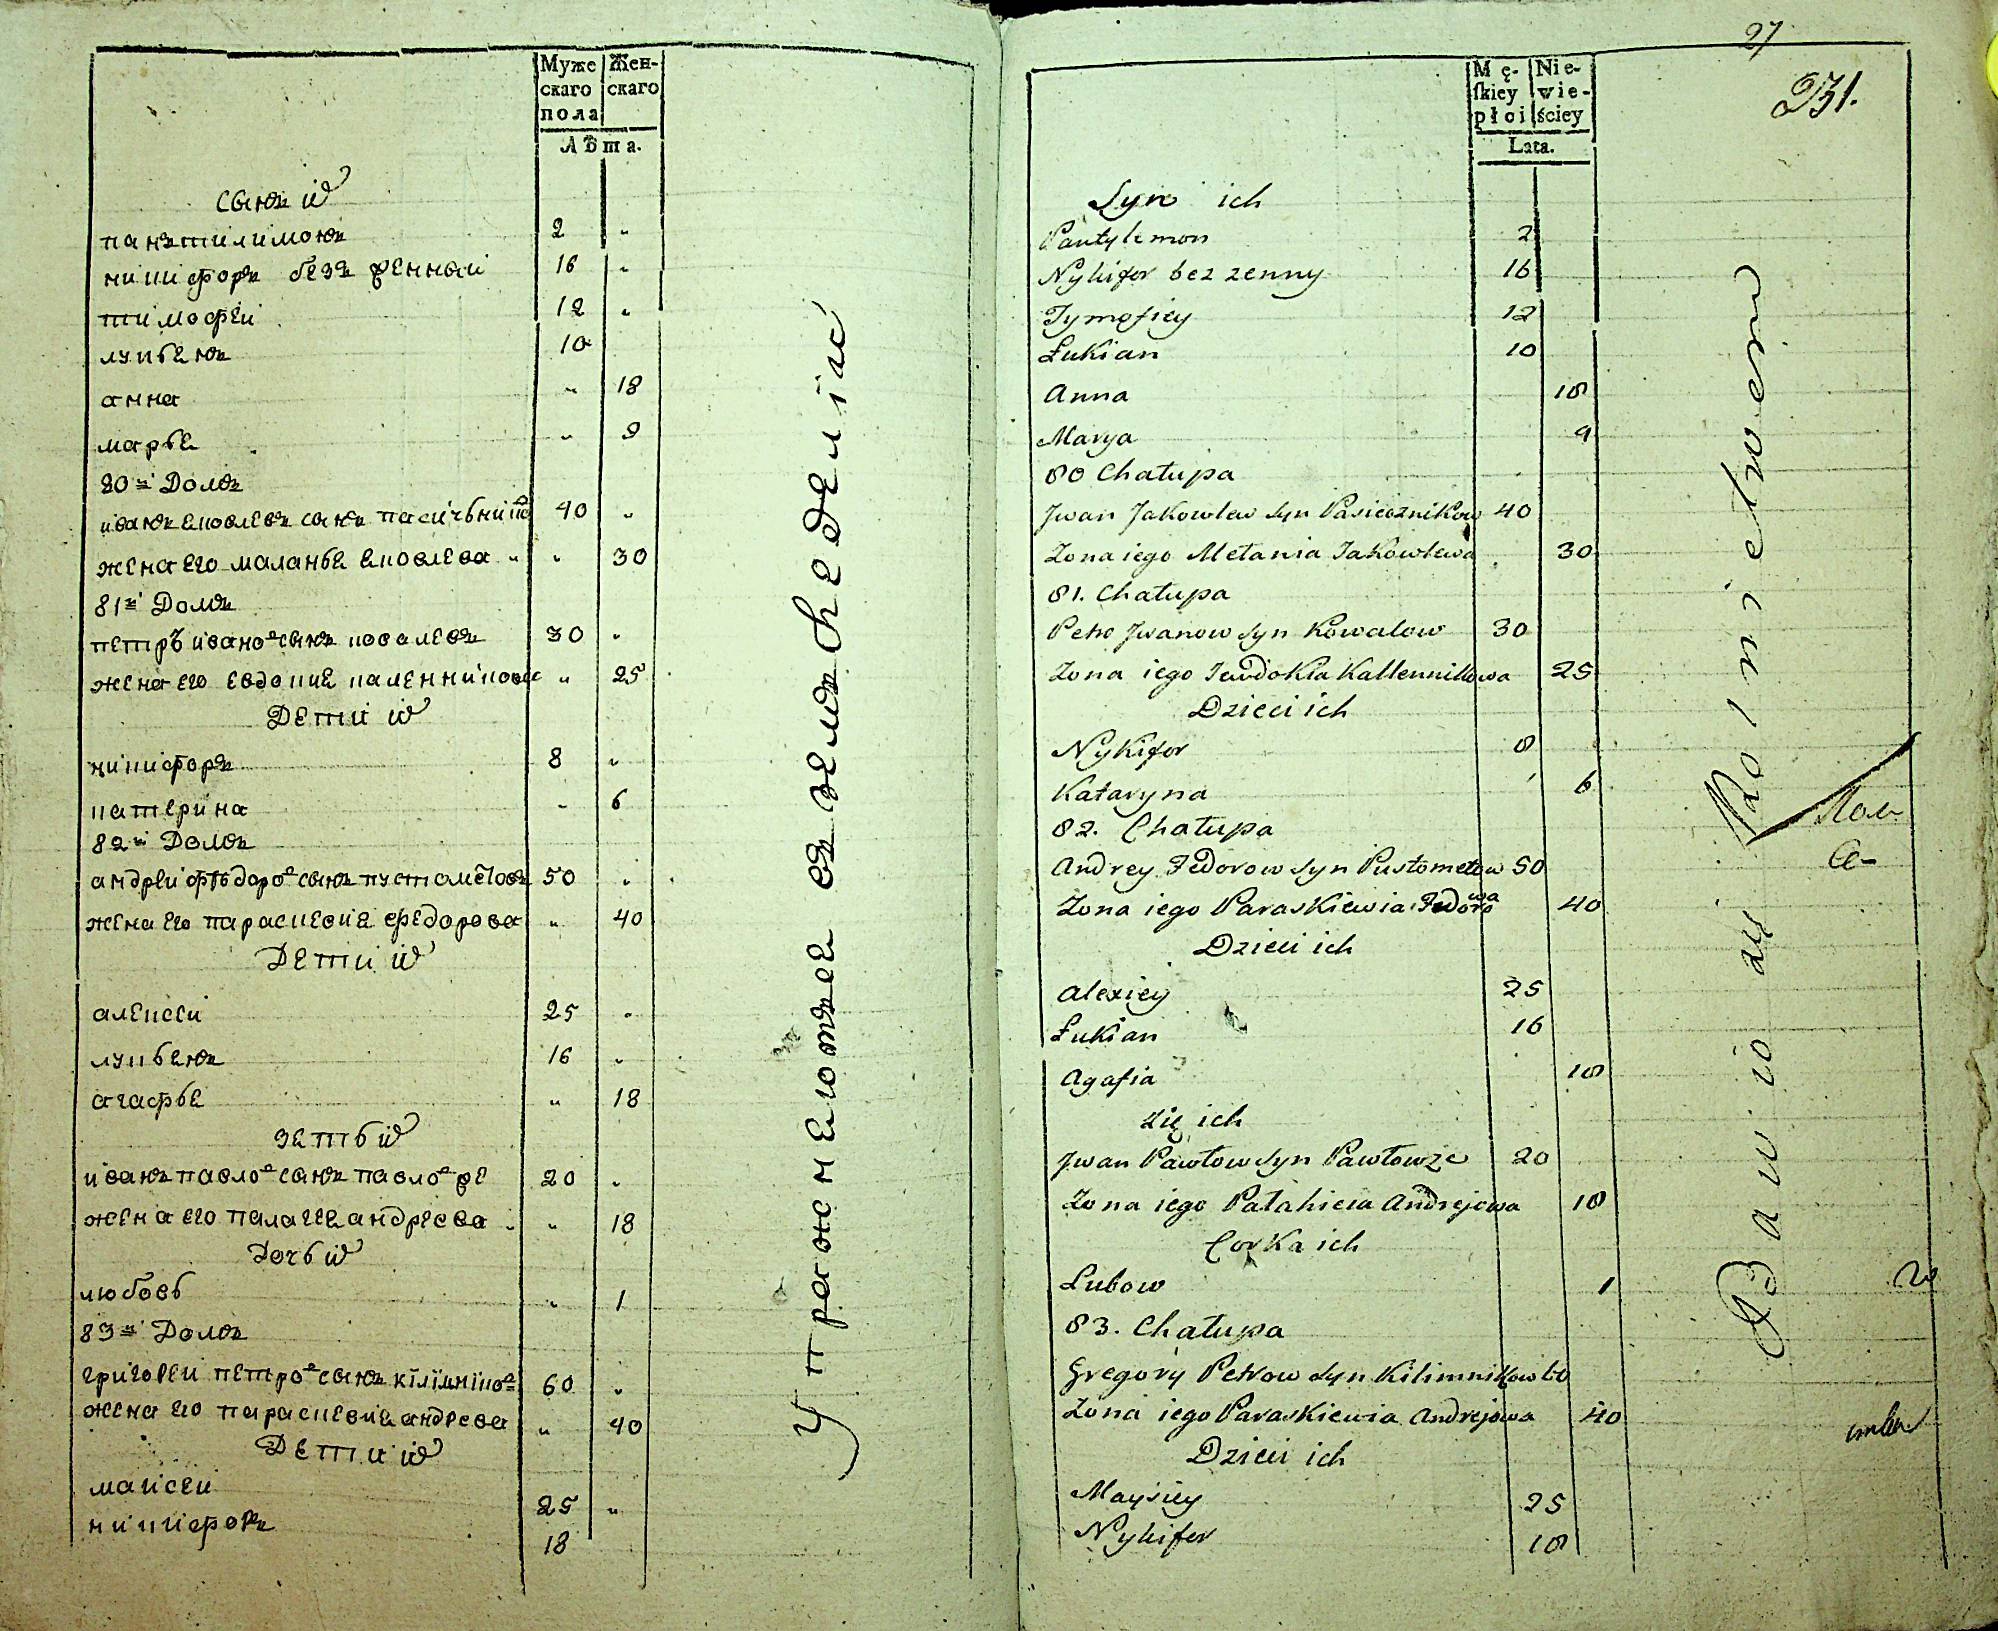 Муже
скаго
пола
Жен-
скаго
Лѣта.
сынъ иⷯ
панътилимонъ 2 "
никифоръ безъ женный 16 "
тимофеи 12 "
лукьянъ 10
анна " 18
марья " 9
80й Домъ
иванъ яковлевъ сынъ пасичьникоⷡ 40 "
жена его маланья яковлева " 30
81й Домъ
петръ иваноⷡ сынъ ковалевъ 30 "
жена его евдокия каленникова " 25
Дети иⷯ
никифоръ 8 "
катерина " 6
82й Домъ
андреи фѣдороⷡ сынъ пустометовъ 50 "
жена его параскевия федорова " 40
Дети иⷯ
алексеи 25 "
лукьянъ 16 "
агафья " 18
зять иⷯ
иванъ павлоⷡ сынъ павлоⷡже 20 "
жена его палагея андреева " 18
Дочь иⷯ
любовь " 1
83й Домъ
григореи петроⷡ сынъ кілімнікоⷡ 60 "
жена его параскевия андреева " 40
Дети иⷯ
маисеи 25 "
никифоръ 18
Упражнеютъся въ земъ
27
231.
Mę-
ſkiey
płci
Nie-
wie-
ściey
Lata.
Syn ich
Pantylimon 2
Nykifor bez zenny 16
Tymofiey 12
Łukian 10
Anna 18
Marya 9
80 Chałupa
Jwan Jakowlew syn Pasiecznikow 40
Zona iego Mełania Jakowlewa 30
81. Chałupa
Petro Jwanow syn Kowalow 30
Zona iego Jewdokia Kallennikowa 25
Dzieci ich
Nykifor 8
Kataryna 6
82. Chałupa
Andrey Fedorow syn Pustometow 50
Zona iego Paraskiewia Fedorowa 40
Dzieci ich
Alexiey 25
Łukian 16
Agafia 18
Zię ich
Jwan Pawłow syn Pawłowże 20
Zona iego Pałahieia Andrejewa 18
Corka ich
Lubow 1
83. Chałupa
Gregory Petrow syn Kilimnikow 60
Zona iego Paraskiewia Andrejowa 40
Dzieci ich
Maysiey 25
Nykifor 18
Bawio się Rolnictwem